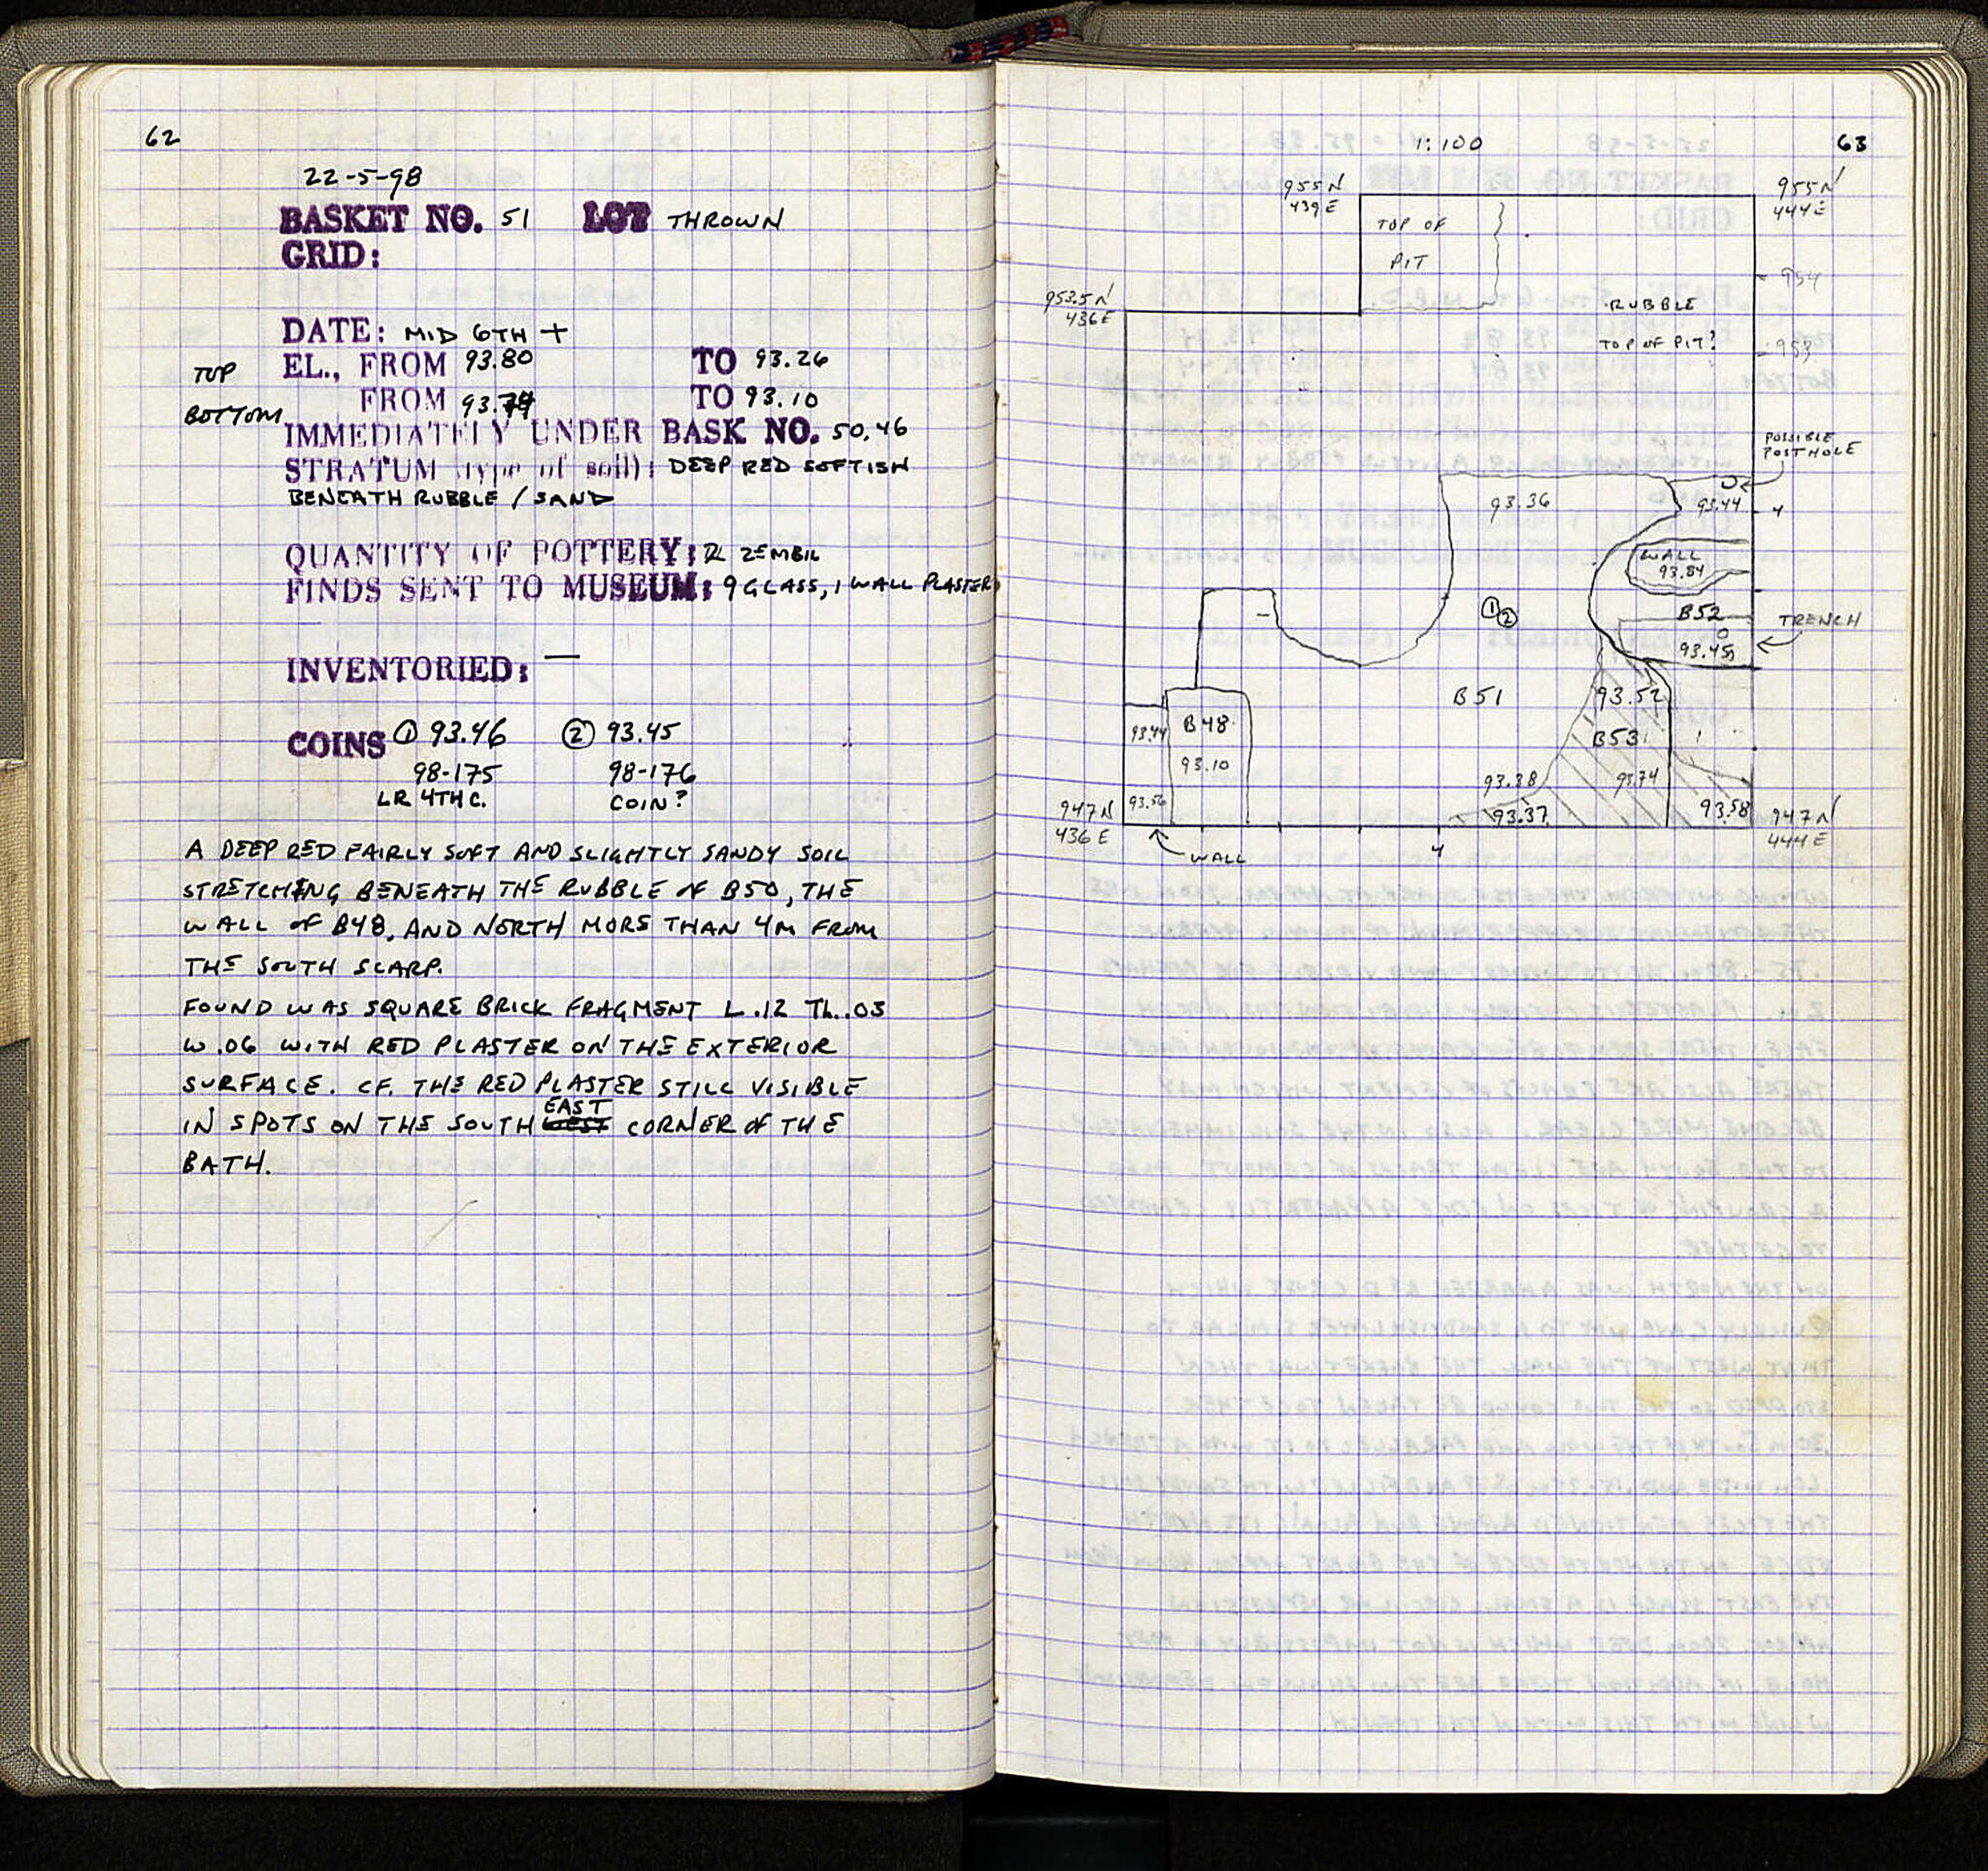 62
22-5-98
BASKET NO. 51 LOT THROWN
GRID:
DATE: MID 6TH +
TOP EL., FROM 93.80 TO 93.26
BOTTOM FROM 93.74 TO 93.10
IMMEDIATELY UNDER BASK NO. 50,46
STRATUM (type of soil): DEEP RED SOFTISH
BENEATH RUBBLE / SAND
QUANTITY OF POTTERY: ZEMBIL
FINDS SENT TO MUSEUM: 9 GLASS, 1 WALL PLASTER
INVENTORIED: —
COINS ① 93.46 ② 93.45
98-175 98-176
LR 4TH C. COIN?
A DEEP RED FAIRLY SOFT AND SLIGHTLY SANDY SOIL
STRETCHING BENEATH THE RUBBLE OF B50, THE
WALL OF B48, AND NORTH MORE THAN 4M FROM
THE SOUTH SCARP.
FOUND WAS SQUARE BRICK FRAGMENT L .12 Th. .03
W .06 WITH RED PLASTER ON THE EXTERIOR
SURFACE. CF. THE RED PLASTER STILL VISIBLE
IN SPOTS ON THE SOUTH WEST EAST CORNER OF THE
BATH.
1:100
63
955N
439E
955N
444E
TOP OF
PIT
954
953.5N
436E
RUBBLE
TOP OF PIT?
953
POSSIBLE
POSTHOLE
93.36
93.44
4
WALL
93.84
① ②
B52
TRENCH
93.45
B51
93.52
93.44
B48
B53
93.10
93.38
93.74
93.56
93.37
93.58
947N
436E
947N
444E
4
WALL